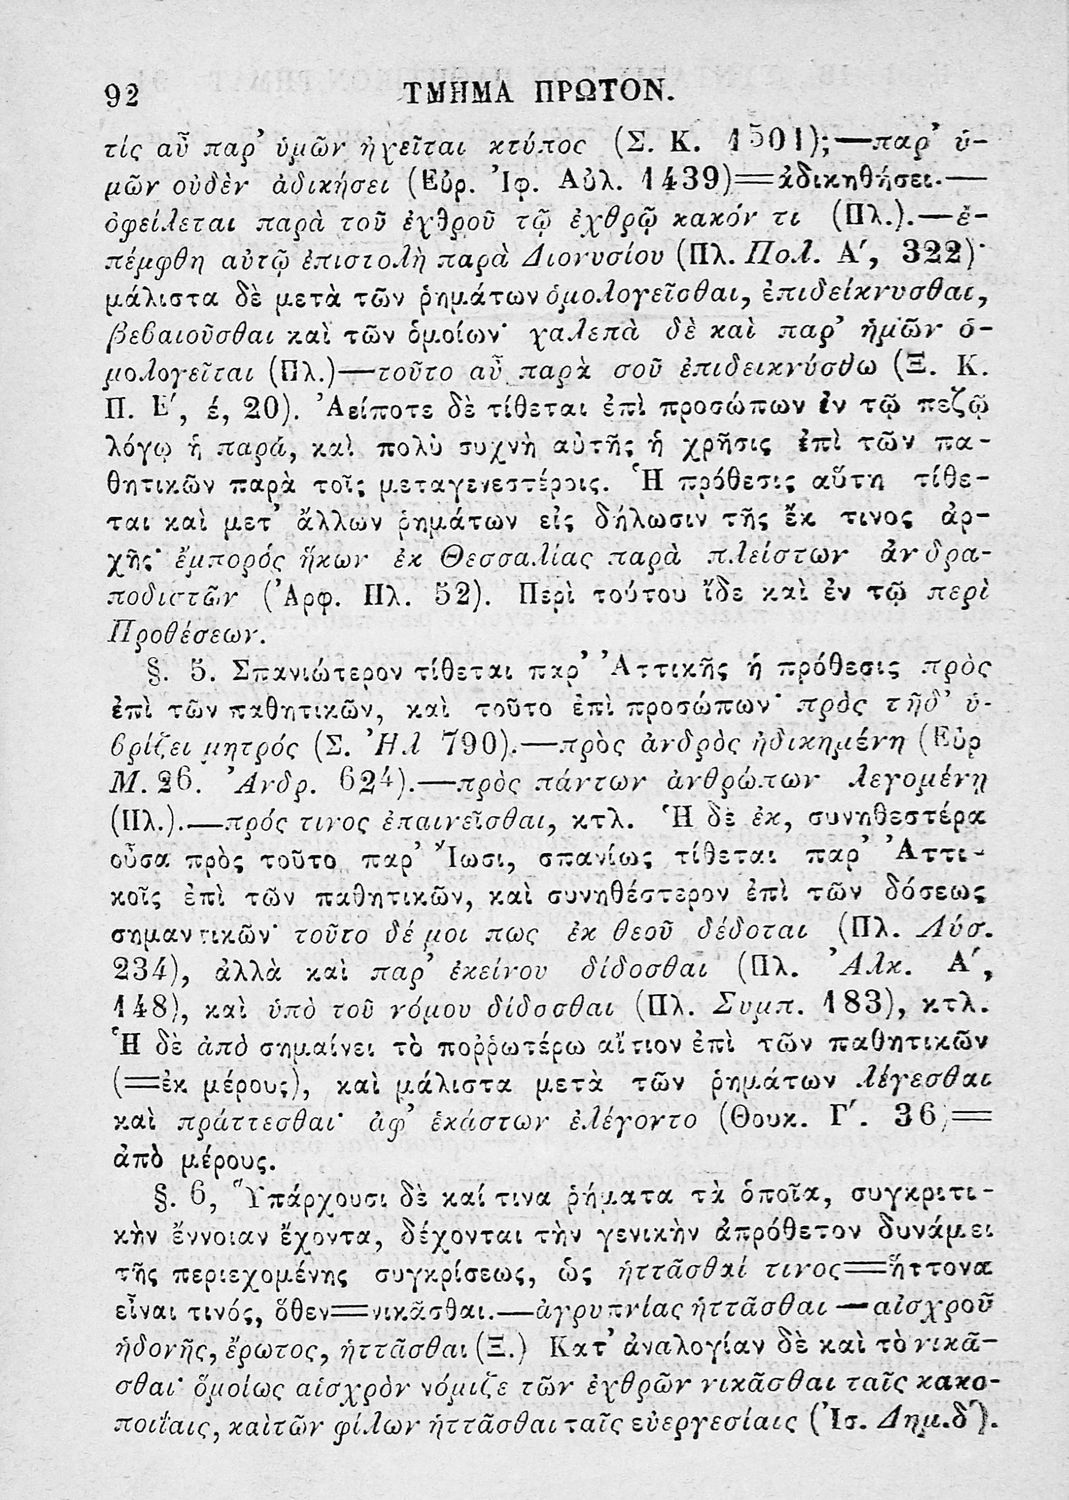 92 ΤΜΗΜΑ ΠΡΩΤΟΝ.
τίς αὖ παρ’ ὑμῶν ἠχεῖται κτύπος (Σ. Κ. 1501);—παρ’ ὑ-
μῶν οὐδὲν ἀδικήσει (Εὐρ. Ἰφ. Αὐλ. 1439)=ἀδικηθήσει.—
ὀφείλεται παρὰ τοῦ ἐχθροῦ τῷ ἐχθρῷ κακόν τι (Πλ.).—ἐ-
πέμφθη αὐτῷ ἐπιστολὴ παρὰ Διονυσίου (Πλ. Πολ. Α΄, 322)·
μάλιστα δὲ μετὰ τῶν ῥημάτων ὁμολογεῖσθαι, ἐπιδείκνυσθαι,
βεβαιοῦσθαι καὶ τῶν ὁμοίων· χαλεπὰ δὲ καὶ παρ’ ἡμῶν ὁ-
μολογεῖται (Πλ.)—τοῦτο αὖ παρὰ σοῦ ἐπιδεικνύσθω (Ξ. Κ.
Π. Ε΄, έ, 20). Ἀείποτε δὲ τίθεται ἐπὶ προσώπων ἐν τῷ πεζῷ
λόγῳ ἡ παρά, καὶ πολὺ συχνὴ αὐτῆς ἡ χρῆσις ἐπὶ τῶν πα-
θητικῶν παρὰ τοῖς μεταγενεστέροις. Ἡ πρόθεσις αὕτη τίθε-
ται καὶ μετ’ ἄλλων ῥημάτων εἰς δήλωσιν τῆς ἔκ τινος ἀρ-
χῆς· ἔμπορός ἥκων ἐκ Θεσσαλίας παρὰ πλείστων ἀνδρα-
ποδιστῶν (Ἀρφ. Πλ. 52). Περὶ τούτου ἴδε καὶ ἐν τῷ περὶ
Προθέσεων.
§. 5. Σπανιώτερον τίθεται παρ’ Ἀττικῆς ἡ πρόθεσις πρὸς
ἐπὶ τῶν παθητικῶν, καὶ τοῦτο ἐπὶ προσώπων· πρὸς τῆδ’ ὑ-
βρίζει μητρός (Σ. Ἠλ 790).—πρὸς ἀνδρὸς ἠδικημένη (Εὐρ
Μ. 26. Ἀνδρ. 624).—πρὸς πάντων ἀνθρώπων λεγομένῃ
(Πλ.).—πρός τινος ἐπαινεῖσθαι, κτλ. Ἡ δὲ ἐκ, συνηθεστέρα
οὖσα πρὸς τοῦτο παρ’ Ἴωσι, σπανίως τίθεται παρ’ Ἀττι-
κοῖς ἐπὶ τῶν παθητικῶν, καὶ συνηθέστερον ἐπὶ τῶν δόσεως
σημαντικῶν· τοῦτο δέ μοι πως ἐκ θεοῦ δέδοται (Πλ. Λύσ.
234), ἀλλὰ καὶ παρ’ ἐκείνου δίδοσθαι (Πλ. Ἀλκ. Α΄,
148), καὶ ὑπὸ τοῦ νόμου δίδοσθαι (Πλ. Συμπ. 183), κτλ.
Ἡ δὲ ἀπὸ σημαίνει τὸ ποῤῥωτέρω αἴτιον ἐπὶ τῶν παθητικῶν
(=ἐκ μέρους), καὶ μάλιστα μετὰ τῶν ῥημάτων λέγεσθαι
καὶ πράττεσθαι· ἀφ’ ἑκάστων ἐλέγοντο (Θουκ. Γ΄. 36)=
ἀπὸ μέρους.
§. 6, Ὑπάρχουσι δὲ καί τινα ῥήματα τὰ ὁποῖα, συγκριτι-
κὴν ἔννοιαν ἔχοντα, δέχονται τὴν γενικὴν ἀπρόθετον δυνάμει
τῆς περιεχομένης συγκρίσεως, ὡς ἡττᾶσθαί τινος=ἥττονα
εἶναι τινός, ὅθεν=νικᾶσθαι.—ἀγρυπνίας ἡττᾶσθαι—αἰσχροῦ
ἡδονῆς, ἔρωτος, ἡττᾶσθαι (Ξ.) Κατ’ ἀναλογίαν δὲ καὶ τὸ νικᾶ-
σθαι· ὁμοίως αἰσχρὸν νόμιζε τῶν ἐχθρῶν νικᾶσθαι ταῖς κακο-
ποιΐαις, καὶ τῶν φίλων ἡττᾶσθαι ταῖς εὐεργεσίαις (Ἰσ. Δημ. δ΄).